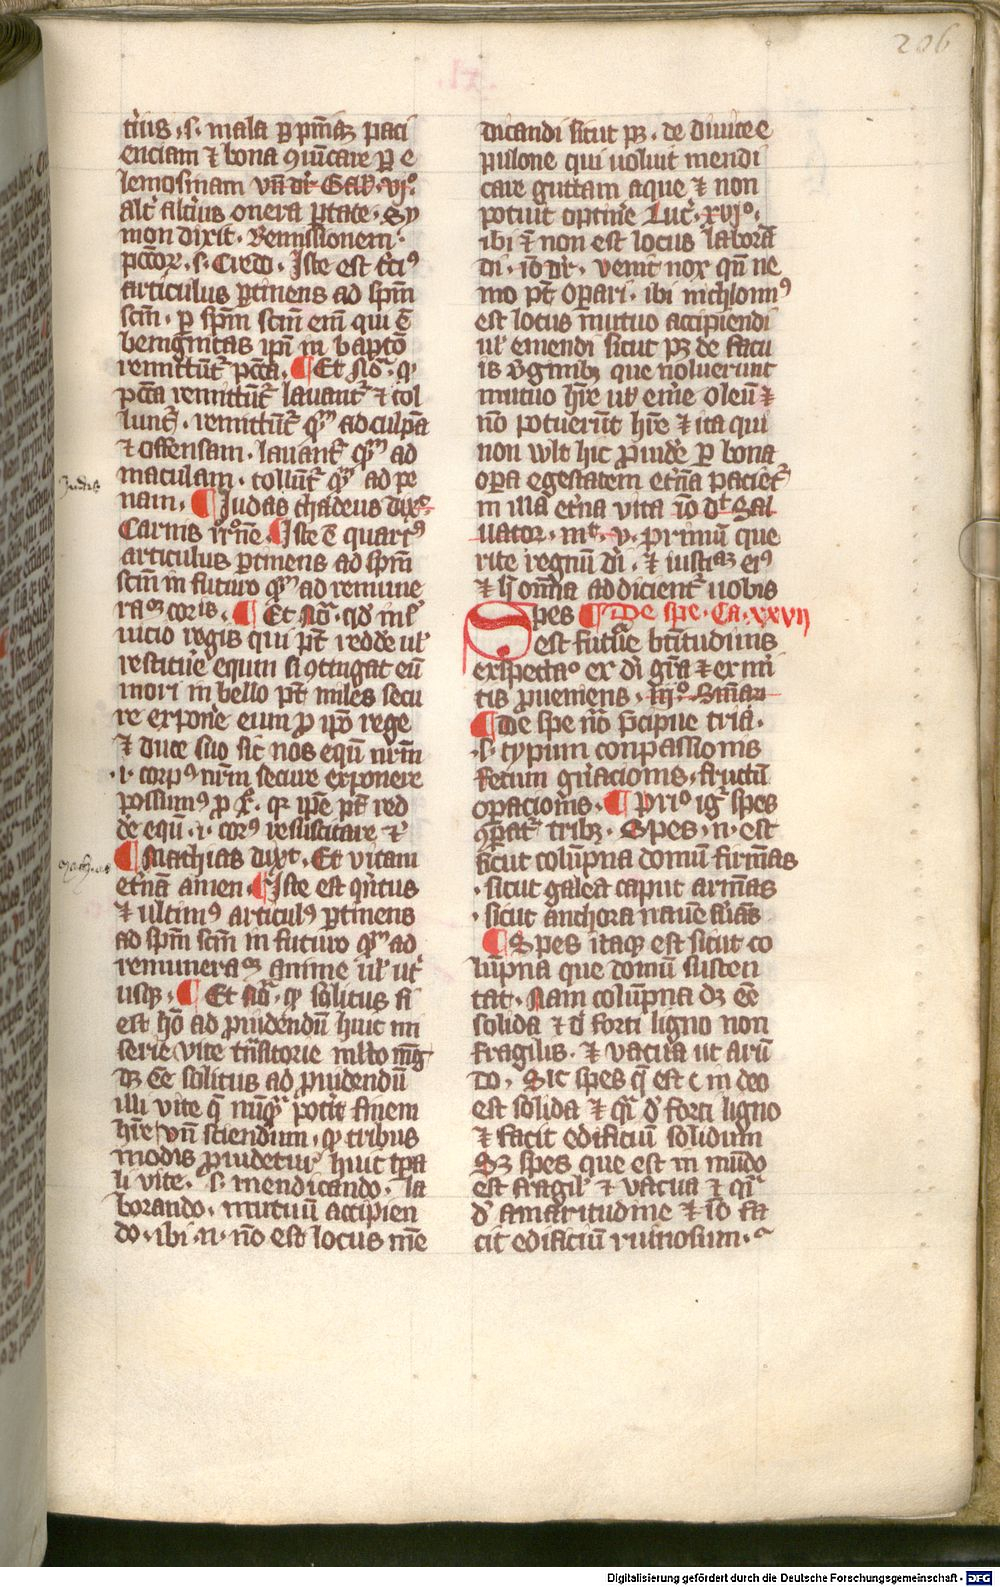 206
t͛ius · s · mala ꝑ pm̄aꝫ paci
enciam ⁊ bona ꝯūicare ꝑ e
lemosinam vn̄ dr̄ Gal̄ · vjº ·
alt͛ alt͛ius onera ꝑtate · Sy
mon dixit · Remissionem ·
pctōꝝ · s · Credo · Iste est t͛ciꝰ
articulus ꝑtinens ad spm̄
scm̄ · ꝑ spm̄ scm̄ em̄ qui ē
benignitas ipī in baptō
remittūt͛ pctā · ¶ Et No͛ · ꝙ
pctā remittūt͛ lauant͛ ⁊ tol
lunt͛ · remittūt͛ qᷓm ad culpā
⁊ offensam · lauant͛ qᷓm ad
maculam · tollūt͛ qᷓm ad pe
nam · ¶ Iudas thadeus dix͛
Iudas
Carnis rr̄onē · ¶ Iste ē quartꝰ
articulus ꝑtinens ad spm̄
scm̄ in futuro qᷓm ad remune
raōꝫ corꝭ · ¶ Et No͛ · qd̄ in ẜ
uicio regis qui pt̄ redde͛ ul̓
restitue͛ equm si ꝯtingat eū
mori in bello pt̄ miles secu
re expone͛ eum ꝓ ipō rege
⁊ duce suo sic nos equū nr̄m
· i · corpꝰ nr̄m secure exponere
possumꝰ ꝓ xº · qꝛ ipē pt̄ red
de͛ equū · i · corꝰ resuscitare ⁊c̄
¶ Mathias dixt · Et vitam
Mathias
et͛nā amen · ¶ Iste est qn̄tus
⁊ ultimꝰ articulꝰ ꝑtinens
ad spm̄ scm̄ in futuro qᷓm ad
remuneraōꝫ anime ul̓ ut͛
usqꝫ · ¶ Et No͛ · ꝙ solitus si
est hō ad ꝓuidendū huic mi
serie vite tn̄sitorie ml̄to mḡ
dꝫ eē solitus ad ꝓuidendū
illi vite q̄ nūqᷓ pot͛it finem
hr̄e vn̄ sciendum · ꝙ tribus
modis ꝓuidetur huic tp̄a
li vite · s · mendicando · la
borando · mutuū accipien
do · ibi · n · nō est locus mē
dicandi sicut pꝫ · de diuite e
pulone qui uoluit mendi
care guttam aque ⁊ non
potuit optine͛ Luc͛ · xvjº ·
ibi ⁊ non est locus laborā
di · iō dr̄ · venit nox qn̄ ne
mo pt̄ oꝑari · ibi nichlomīꝰ
est locus mutuo accipiendi
ul̓ emendi sicut pꝫ de fatu
is v͛ginibꝫ que noluerunt
mutuo hr̄e ul̓ eme͛ oleū ⁊
nō potuerūt hr̄e ⁊ ita qui
non wlt hic ꝓuide͛ ꝑ bona
oꝑa egestatem et͛na paciet͛
in illa et͛na vita iō dt̄ Sal
uator · mᵗ · v · primū que
rite regnū di · ⁊ iusticiaꝫ eiꝰ
⁊ h̄ om̄ia addicient͛ uobis
Spes ¶ De spe · Ca · xxvij
est futur͛e btītudinis
exspectaº ex di gr̄a ⁊ ex mi
tis ꝓueniens
¶ De spe nō p͛cipue tria ·
· s · typum conpassionis
fetum gn̄acionis · fructū
oꝑacionis · ¶ Priº igr̄ spes
ꝯꝑat͛ tribꝫ · Spes · n · est
sicut colūpna domū firmās
· sicut galea caput armās
· sicut anchora nauē
¶ Spes itaqꝫ est sicut co
lūpna que domū susten
tat · Nam colūpna dꝫ eē
solida ⁊ d̓ forti ligno non
fragilis · ⁊ vacua ut arū
do · Sic spes q̄ est in deo
est solida ⁊ qᷓi d̓ forti ligno
⁊ facit edificiū solidum
Sꝫ spes que est in mūdo
est fragil̓ ⁊ vacua ⁊ qᷓi
d̓ amaritudine ⁊ iō fa
cit edificiū ruinosum ·
Digitalisierung gefördert durch die Deutsche Forschungsgemeinschaft - DFG